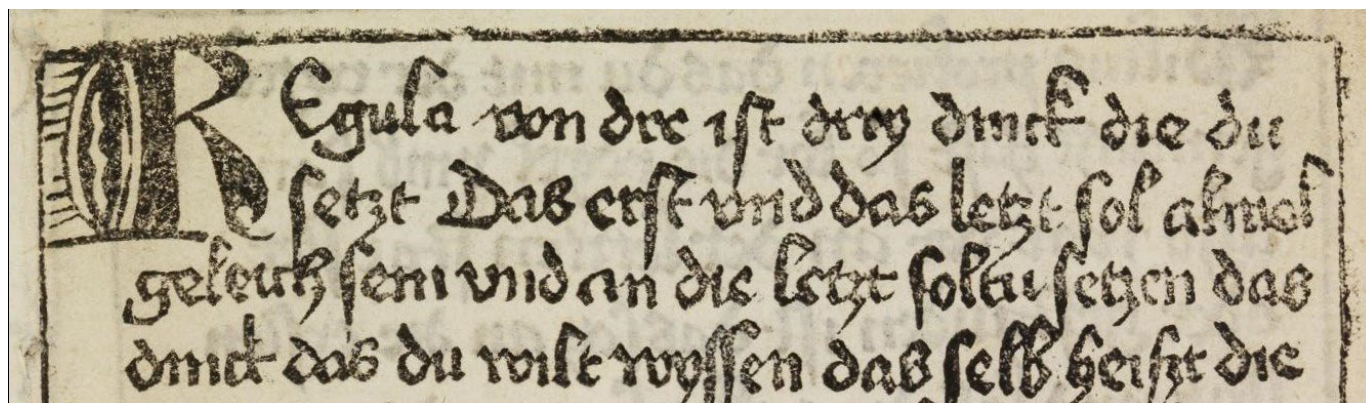 REgula von dre ist drey dinck die du
setzt Das erst vnd das letzt sol almol
geleich sein vnd an die letzt soltu setzen das
dinck das du wilt wyssen das selb heiszt die